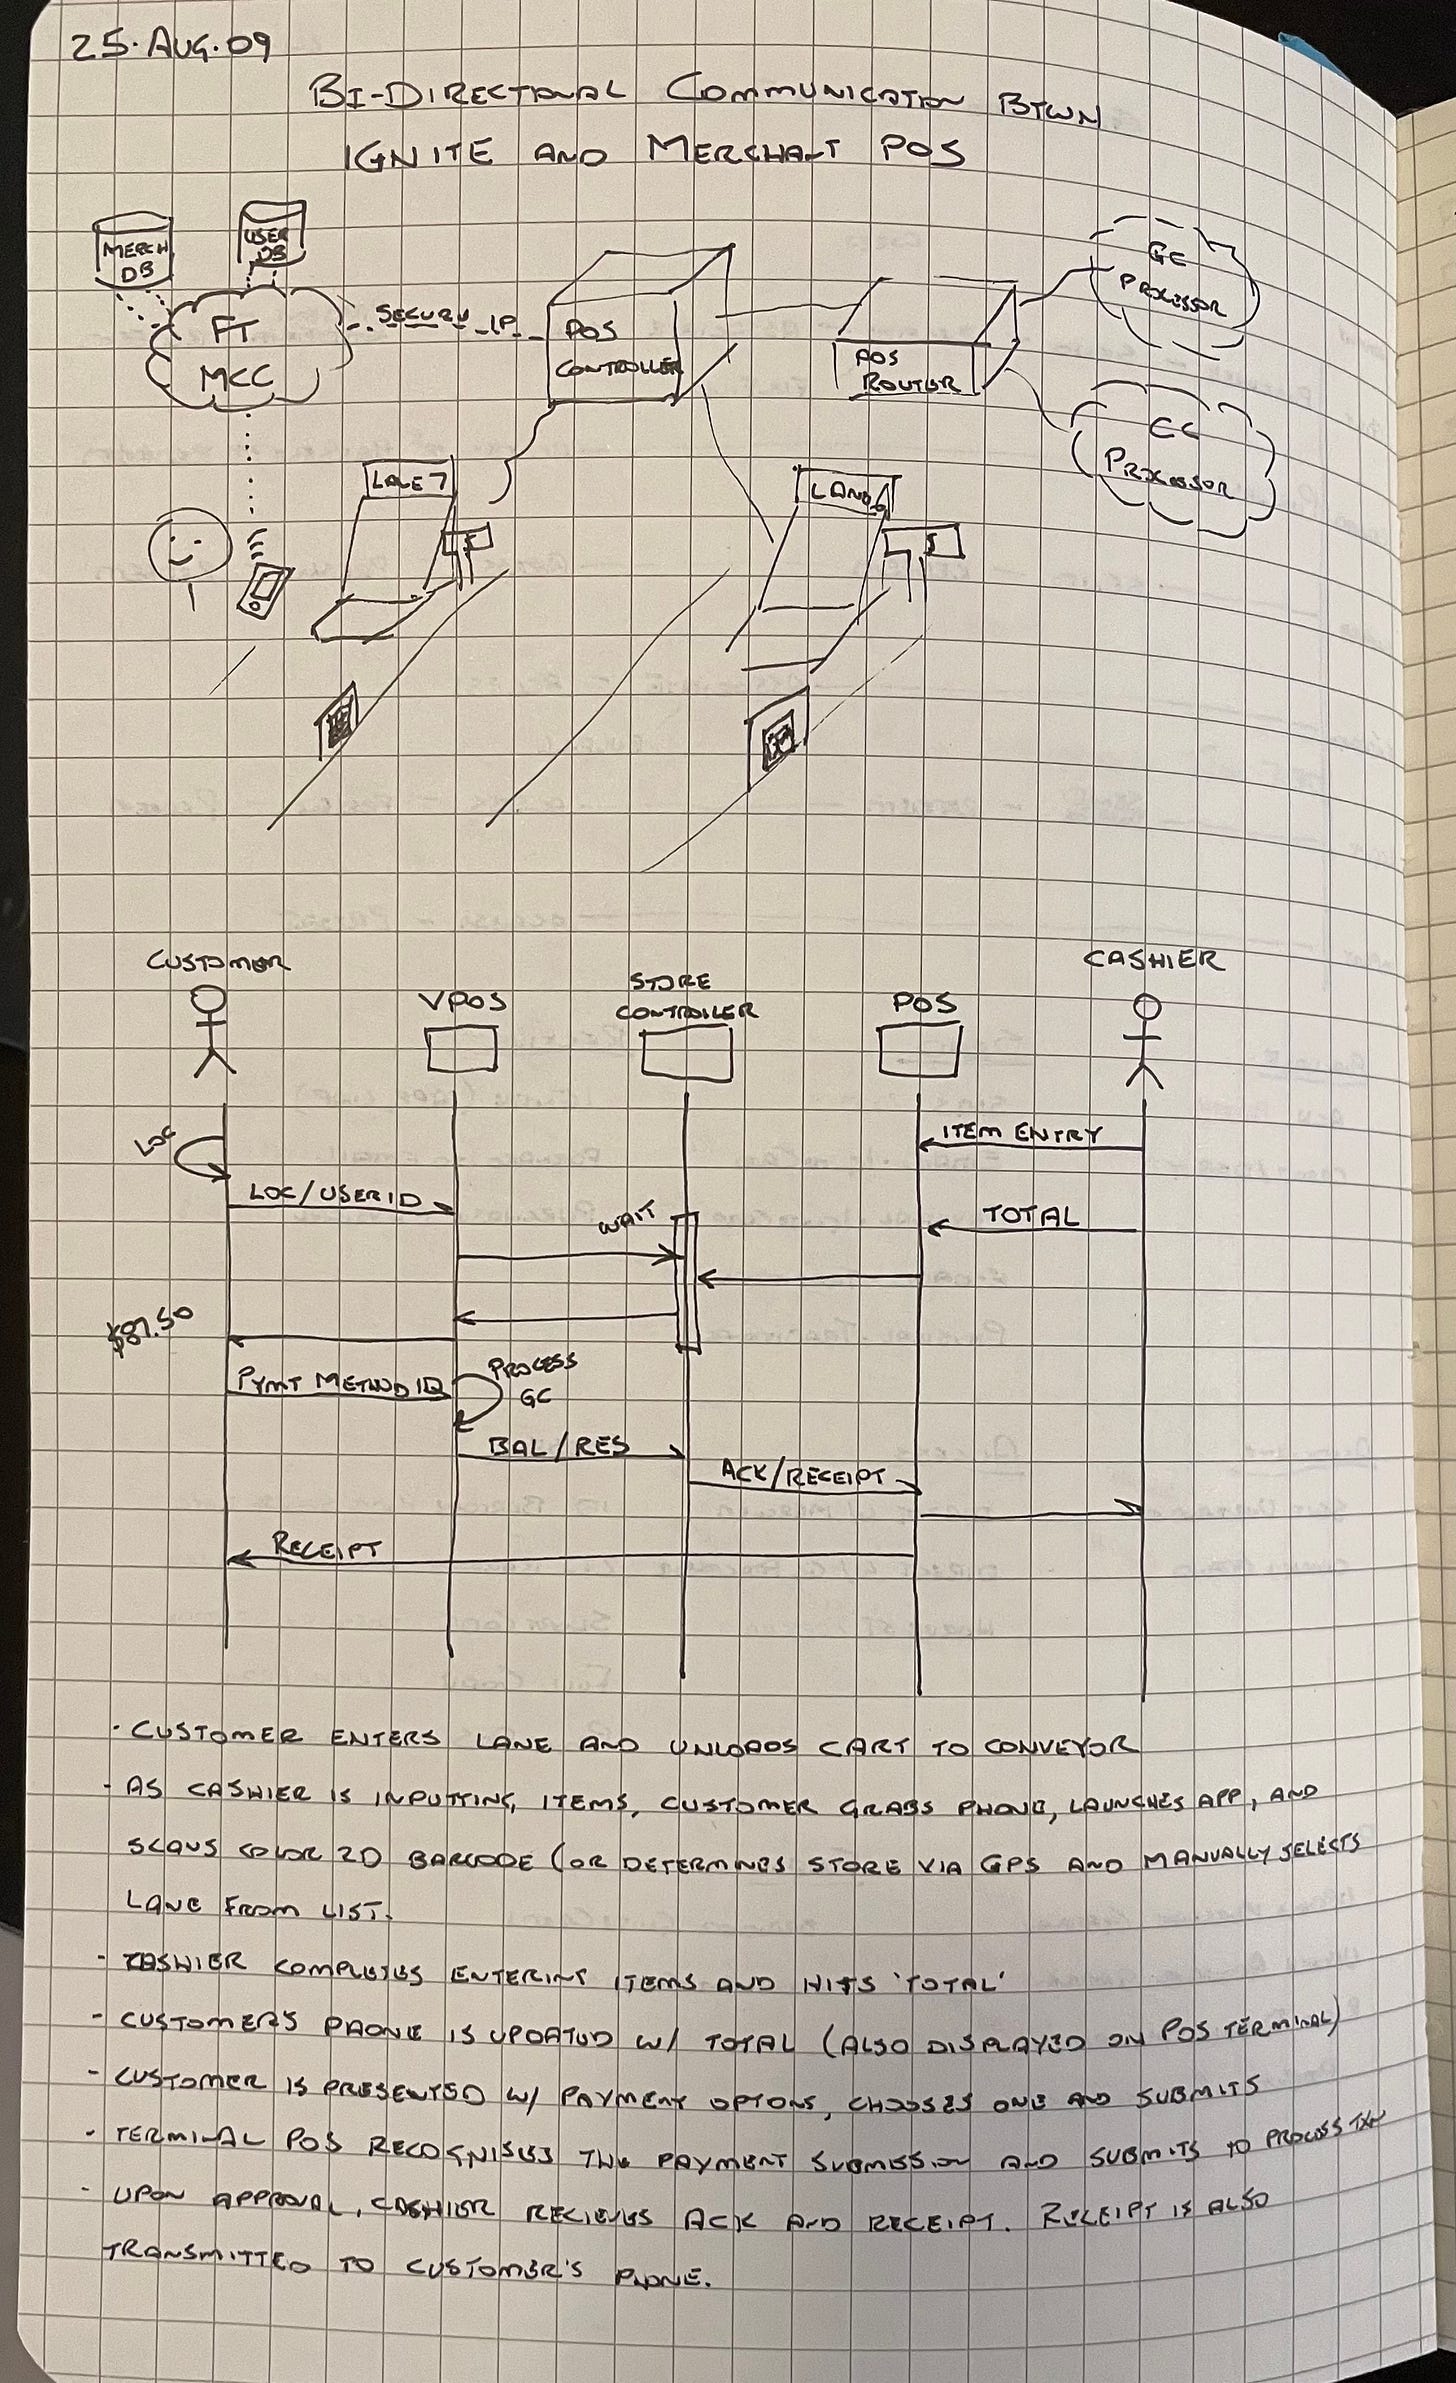 25·AUG·09
BI-DIRECTIONAL COMMUNICATION BTWN
IGNITE AND MERCHANT POS
MERCH
DB
USER
DB
FT
MCC
SECURE IP
POS
CONTROLLER
POS
ROUTER
GC
PROCESSOR
CC
PROCESSOR
LANE 7
LANE 6
$
$
CUSTOMER
VPOS
STORE
CONTROLLER
POS
CASHIER
LOC
ITEM ENTRY
LOC/USERID
WAIT
TOTAL
$87.50
PYMT METHOD ID
PROCESS
GC
BAL/RES
ACK/RECEIPT
RECEIPT
· CUSTOMER ENTERS LANE AND UNLOADS CART TO CONVEYOR
- AS CASHIER IS INPUTTING ITEMS, CUSTOMER GRABS PHONE, LAUNCHES APP, AND
SCANS COLOR 2D BARCODE (OR DETERMINES STORE VIA GPS AND MANUALLY SELECTS
LANE FROM LIST.
- CASHIER COMPLETES ENTERING ITEMS AND HITS 'TOTAL'
- CUSTOMER'S PHONE IS UPDATED W/ TOTAL (ALSO DISPLAYED ON POS TERMINAL)
- CUSTOMER IS PRESENTED W/ PAYMENT OPTIONS, CHOOSES ONE AND SUBMITS
- TERMINAL POS RECOGNISES THE PAYMENT SUBMISSION AND SUBMITS TO PROCESS TXN
- UPON APPROVAL, CASHIER RECIEVES ACK AND RECEIPT. RECEIPT IS ALSO
TRANSMITTED TO CUSTOMER'S PHONE.